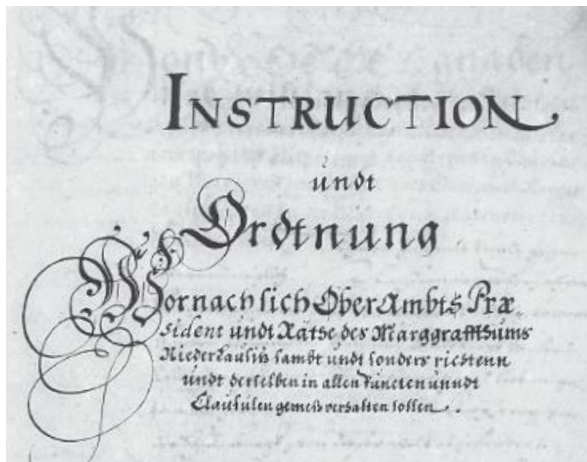 INSTRUCTION
undt
Ordtnung
Wornach sich Ober Ambts Præ
sident undt Räthe des Marggraffthums
Niederlausitz sambt undt sonders richtenn
undt derselben in allen Puncten unndt
Clausulen gemeß verhalten sollen.